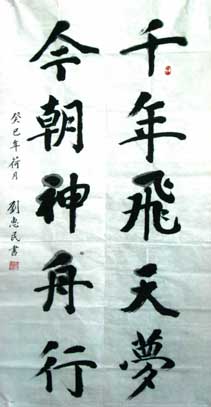 千年飛天夢
今朝神舟行
癸巳年荷月
劉惠民書